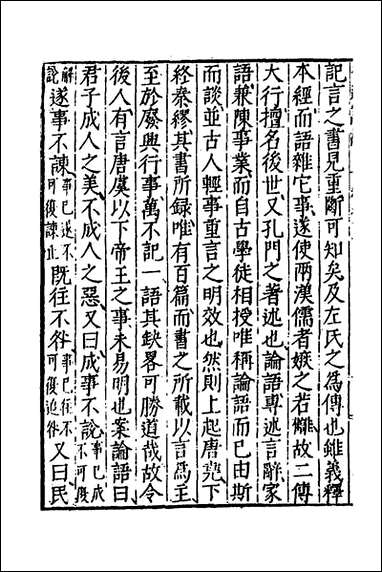 記言之書見重斷可知矣及左氏之爲傳也雖義釋
本經而語雜它事遂使兩漢儒者嫉之若讎故二傳
大行擅名後世又孔門之著述也論語專述言辭家
語兼陳事業而自古學徒相授唯稱論語而已由斯
而談並古人輕事重言之明效也然則上起唐堯下
終秦繆其書所録唯有百篇而書之所載以言爲主
至於廢興行事萬不記一語其缺畧可勝道哉故令
後人有言唐虞以下帝王之事未易明也案論語曰
君子成人之美不成人之惡又曰成事不說事已成不可復
解說遂事不諫事已遂不可復諫止旣往不咎事已往不可復追咎又曰民